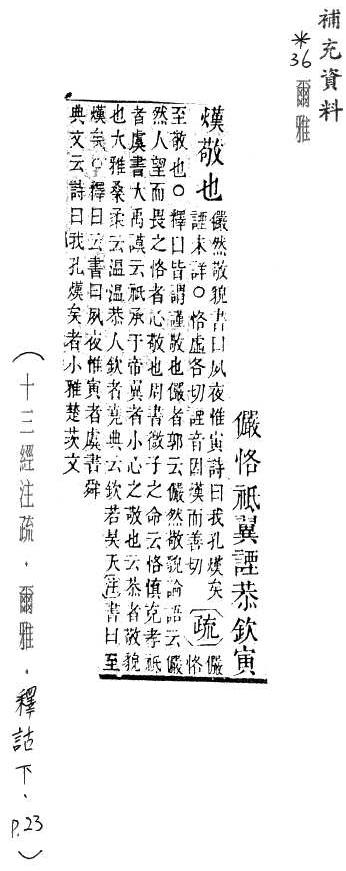 補充資料
*36 爾雅
儼恪祗翼諲恭欽寅
熯敬也
儼然敬貌書曰夙夜惟寅詩曰我孔熯矣
諲未詳○恪虛各切諲音因熯而善切
〔疏〕
儼恪
至敬也○釋曰皆謂謹敬也儼者郭云儼然敬貌論語云儼
然人望而畏之恪者心敬也周書微子之命云恪慎克孝祗
者虞書大禹謨云祗承于帝翼者小心之敬也云恭者敬貌
也大雅桑柔云溫溫恭人欽者堯典云欽若昊天〔注〕書曰至
熯矣○釋曰云書曰夙夜惟寅者虞書舜
典文云詩曰我孔熯矣者小雅楚茨文
（十三經注疏．爾雅．釋詁下．P.23）